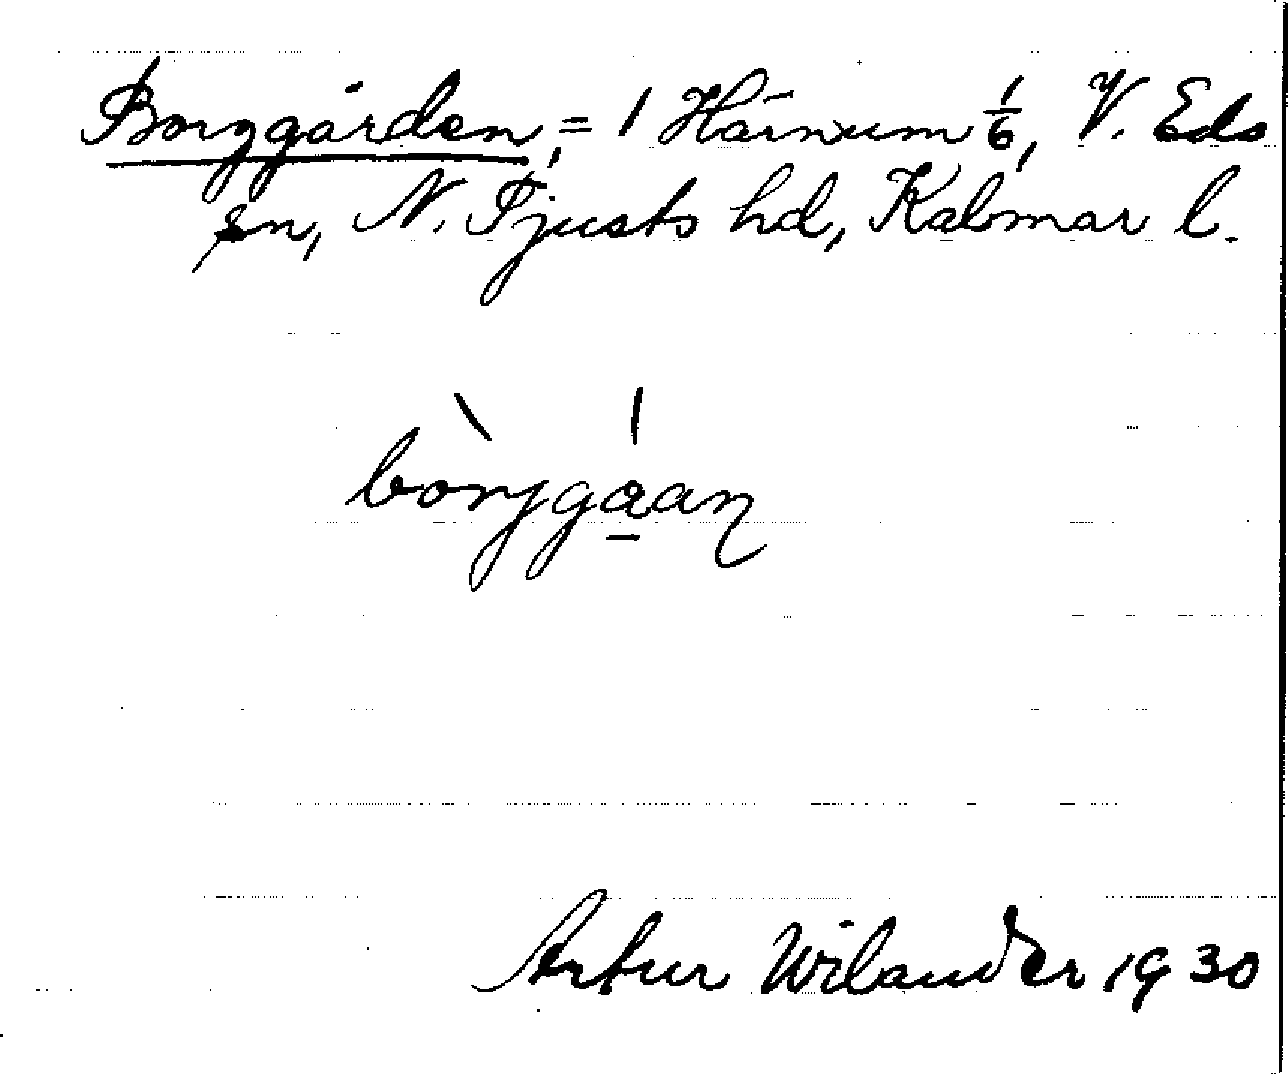 Borggården, = 1 Härnum 1/6, V. Eds
sn, N. Tjusts hd, Kalmar l.
bòrjgåan
Artur Wilander 1930